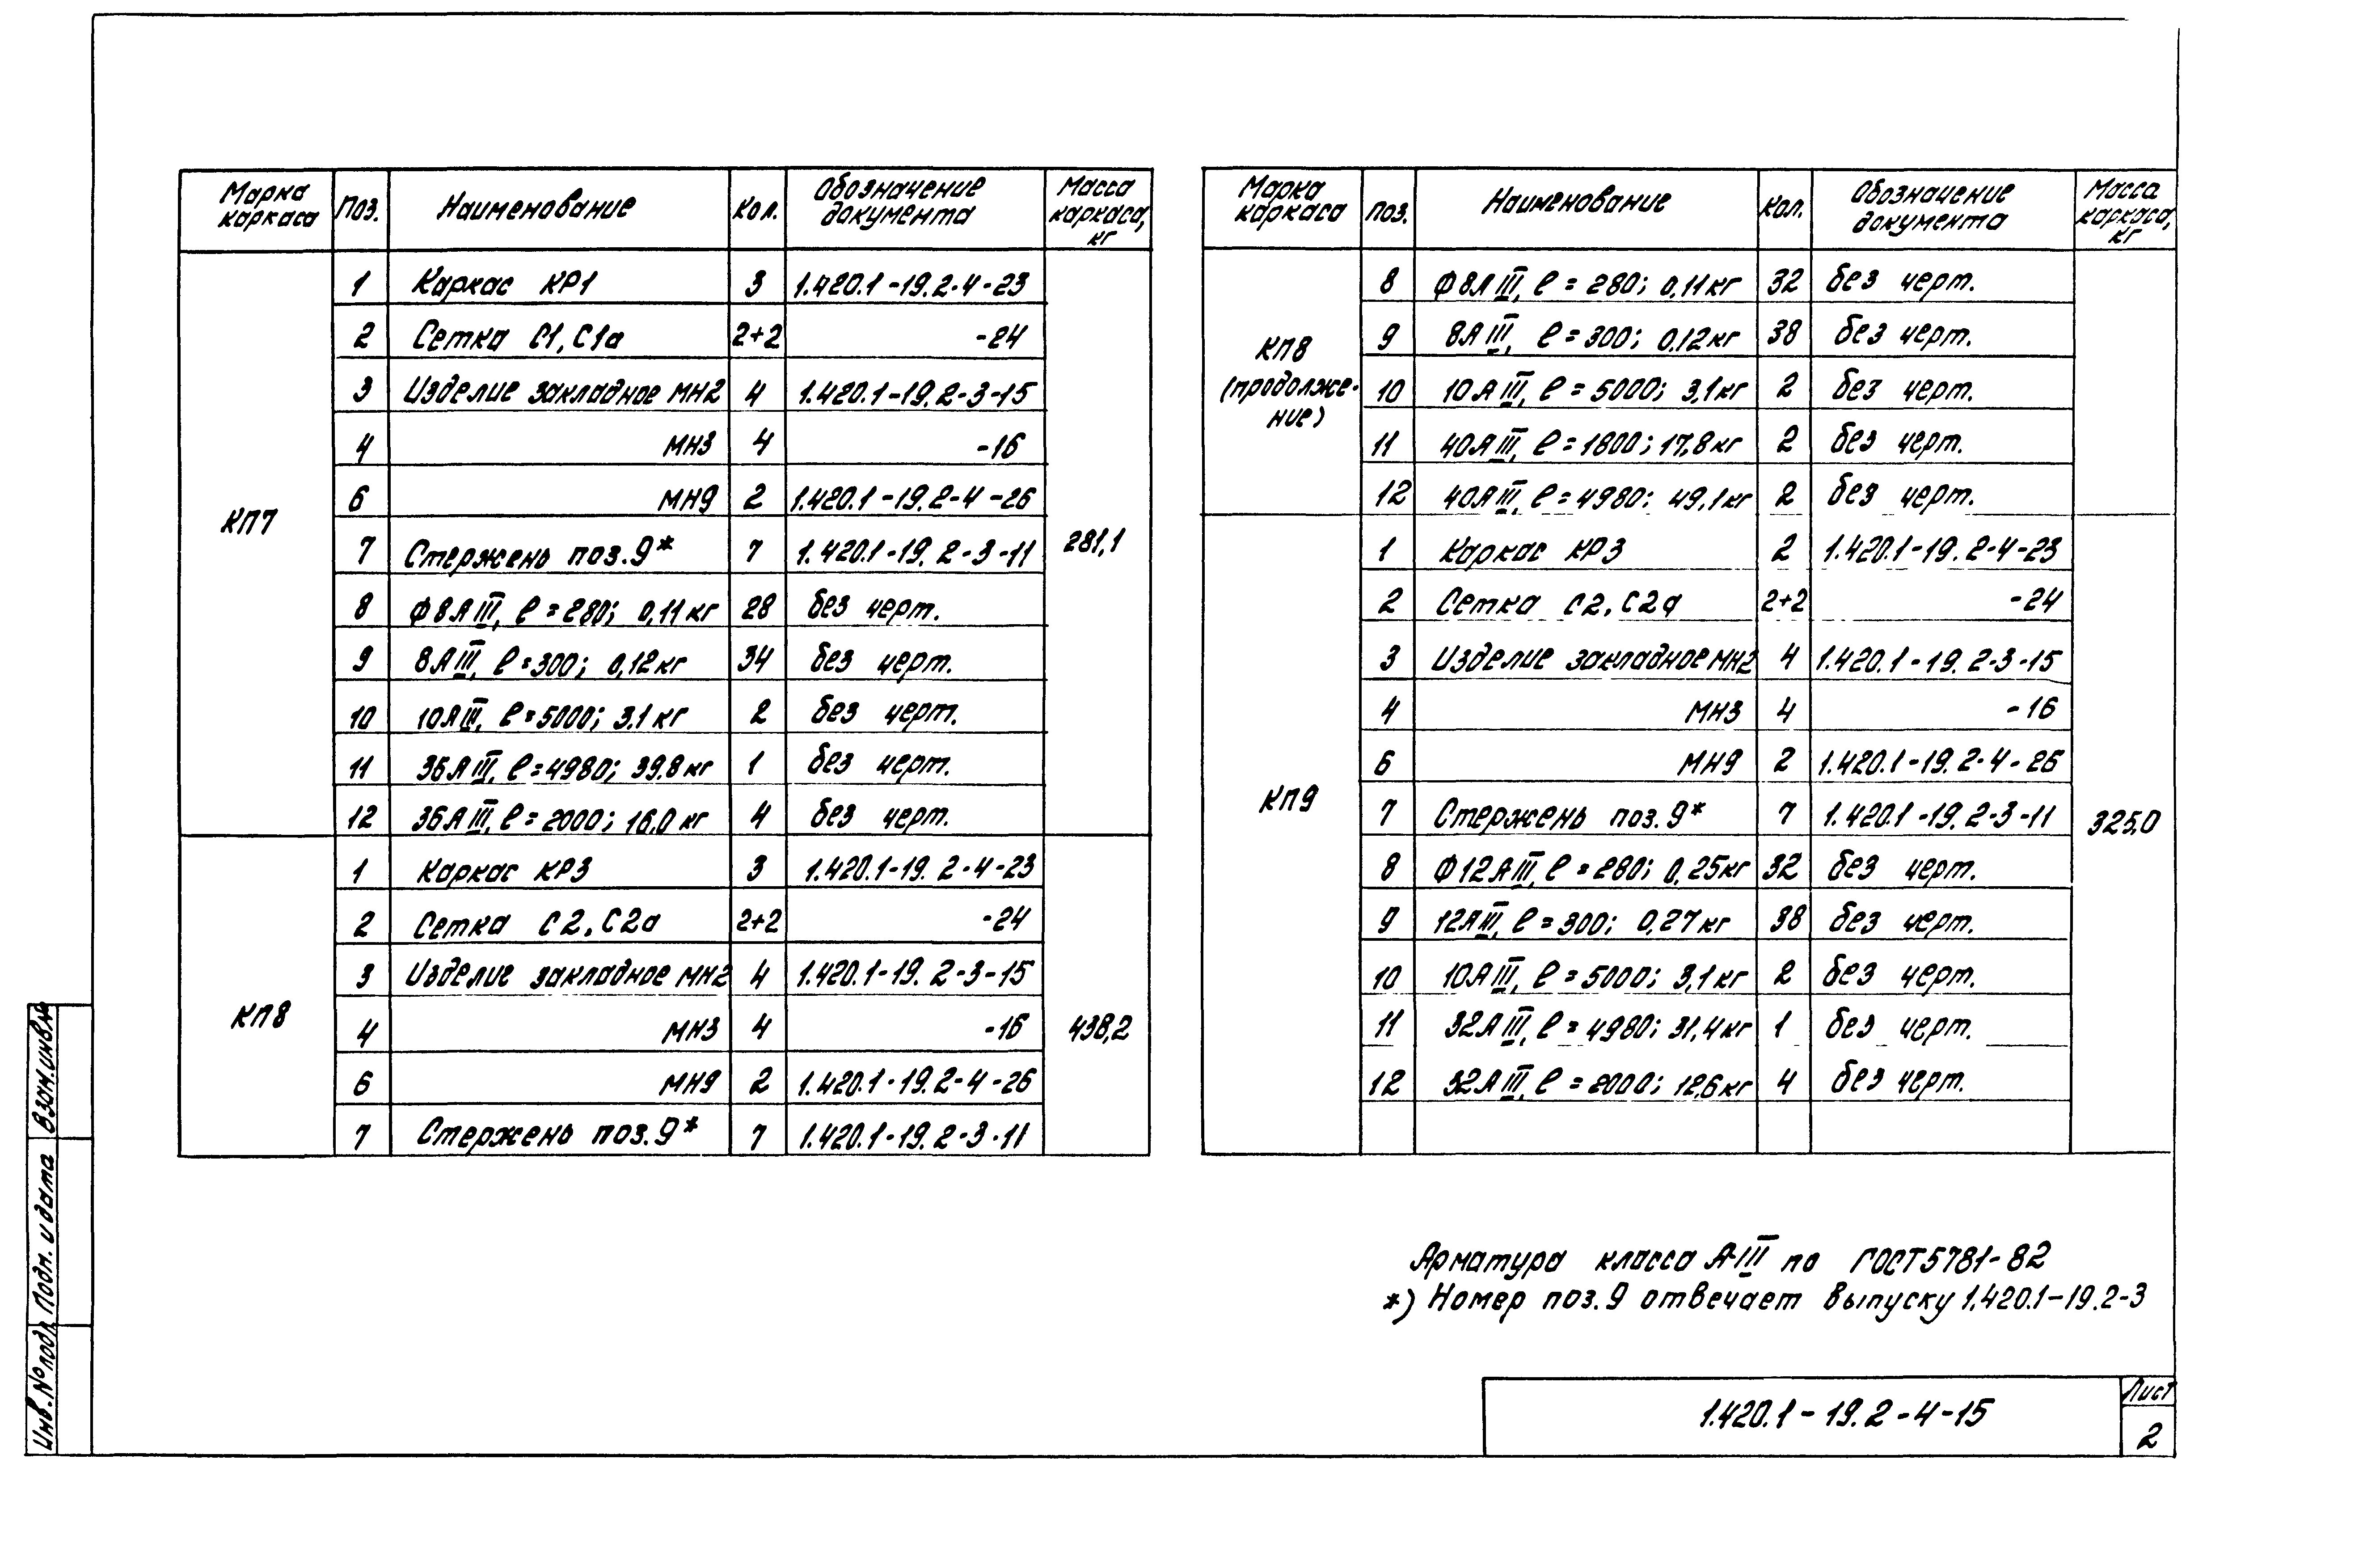 Марка каркаса Поз. Наименование Кол. Обозначение документа Масса каркаса, кг
КП7 281,1
1 Каркас КР1 3 1.420.1-19.2-4-23
2 Сетка С1, С1а 2+2 -24
3 Изделие закладное МН2 4 1.420.1-19.2-3-15
4 МН3 4 -16
6 МН9 2 1.420.1-19.2-4-26
7 Стержень поз.9* 7 1.420.1-19.2-3-11
8 Ф8АIII, ℓ=280; 0,11кг 28 без черт.
9 8АIII, ℓ=300; 0,12кг 34 без черт.
10 10АIII, ℓ=5000; 3,1кг 2 без черт.
11 36АIII, ℓ=4980; 39,8кг 1 без черт.
12 36АIII, ℓ=2000; 16,0кг 4 без черт.
КП8 438,2
1 Каркас КР3 3 1.420.1-19.2-4-23
2 Сетка С2, С2а 2+2 -24
3 Изделие закладное МН2 4 1.420.1-19.2-3-15
4 МН3 4 -16
6 МН9 2 1.420.1-19.2-4-26
7 Стержень поз.9* 7 1.420.1-19.2-3-11
Марка каркаса Поз. Наименование Кол. Обозначение документа Масса каркаса, кг
КП8
(продолже-
ние)
8 Ф8АIII, ℓ=280; 0,11кг 32 без черт.
9 8АIII, ℓ=300; 0,12кг 38 без черт.
10 10АIII, ℓ=5000; 3,1кг 2 без черт.
11 40АIII, ℓ=1800; 17,8кг 2 без черт.
12 40АIII, ℓ=4980; 49,1кг 2 без черт.
КП9 325,0
1 Каркас КР3 2 1.420.1-19.2-4-23
2 Сетка С2, С2а 2+2 -24
3 Изделие закладное МН2 4 1.420.1-19.2-3-15
4 МН3 4 -16
6 МН9 2 1.420.1-19.2-4-26
7 Стержень поз.9* 7 1.420.1-19.2-3-11
8 Ф12АIII, ℓ=280; 0,25кг 32 без черт.
9 12АIII, ℓ=300; 0,27кг 38 без черт.
10 10АIII, ℓ=5000; 3,1кг 2 без черт.
11 32АIII, ℓ=4980; 31,4кг 1 без черт.
12 32АIII, ℓ=2000; 12,6кг 4 без черт.
Арматура класса А-III по ГОСТ 5781-82
*) Номер поз.9 отвечает выпуску 1.420.1-19.2-3
1.420.1-19.2-4-15
Лист
2
Инв.№подл. Подп. и дата Взам.инв.№